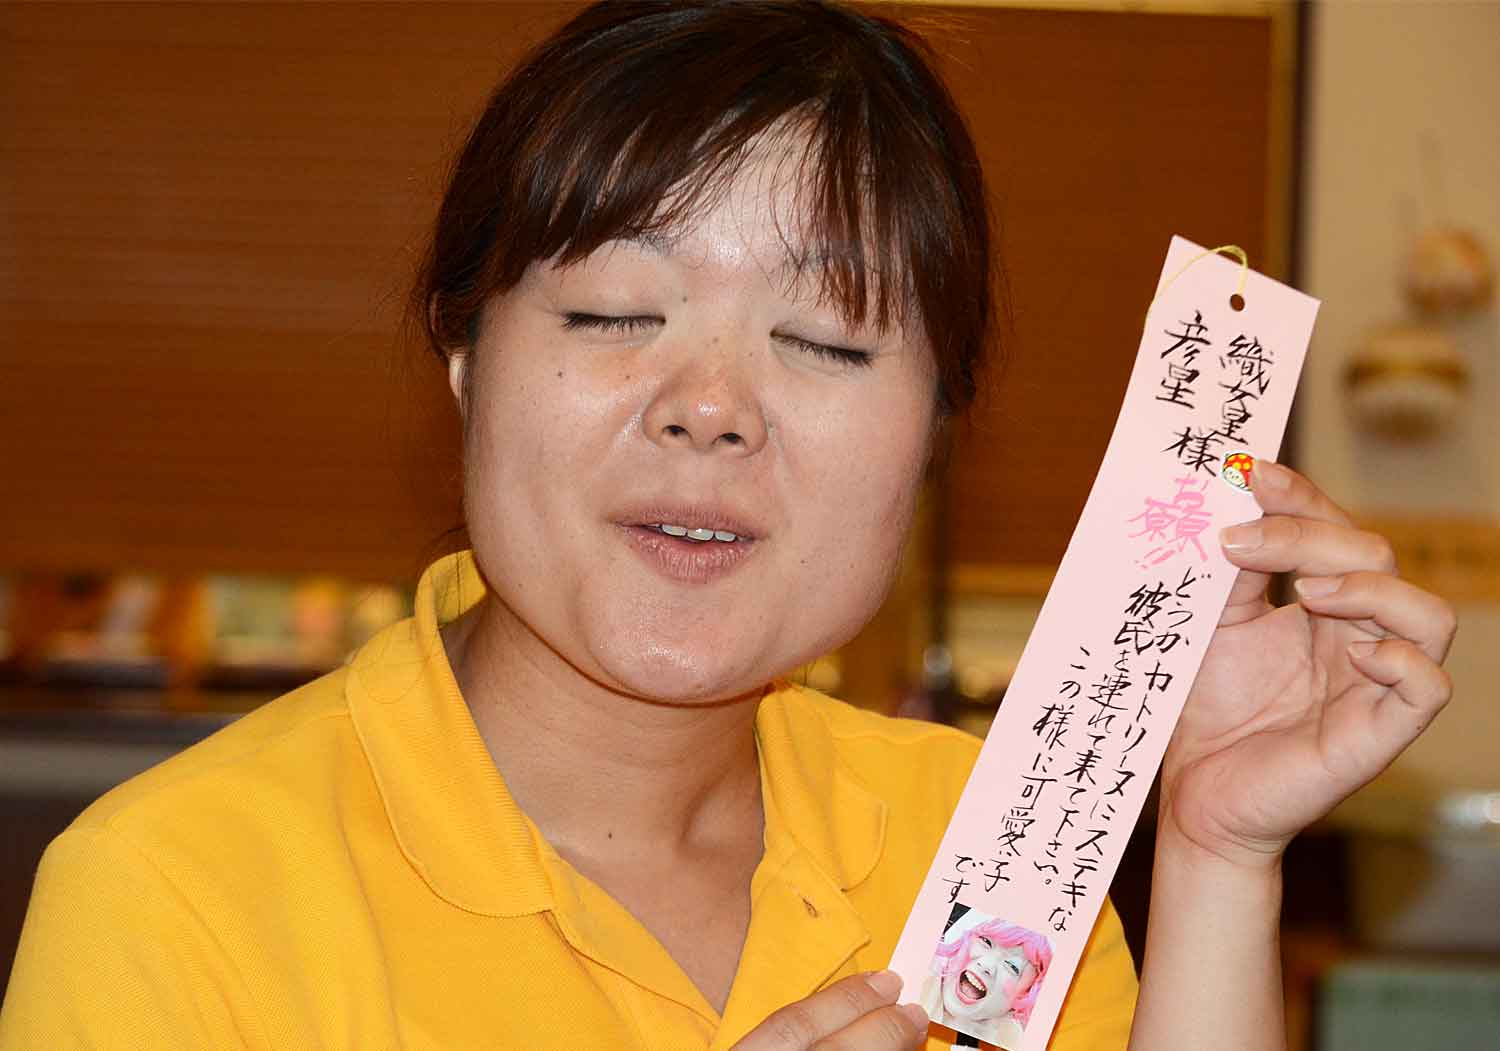 織女星
彦星 様
お願
願!!
どうかカトリーヌにステキな
彼氏を連れて来て下さい。
この様に可愛い子
です